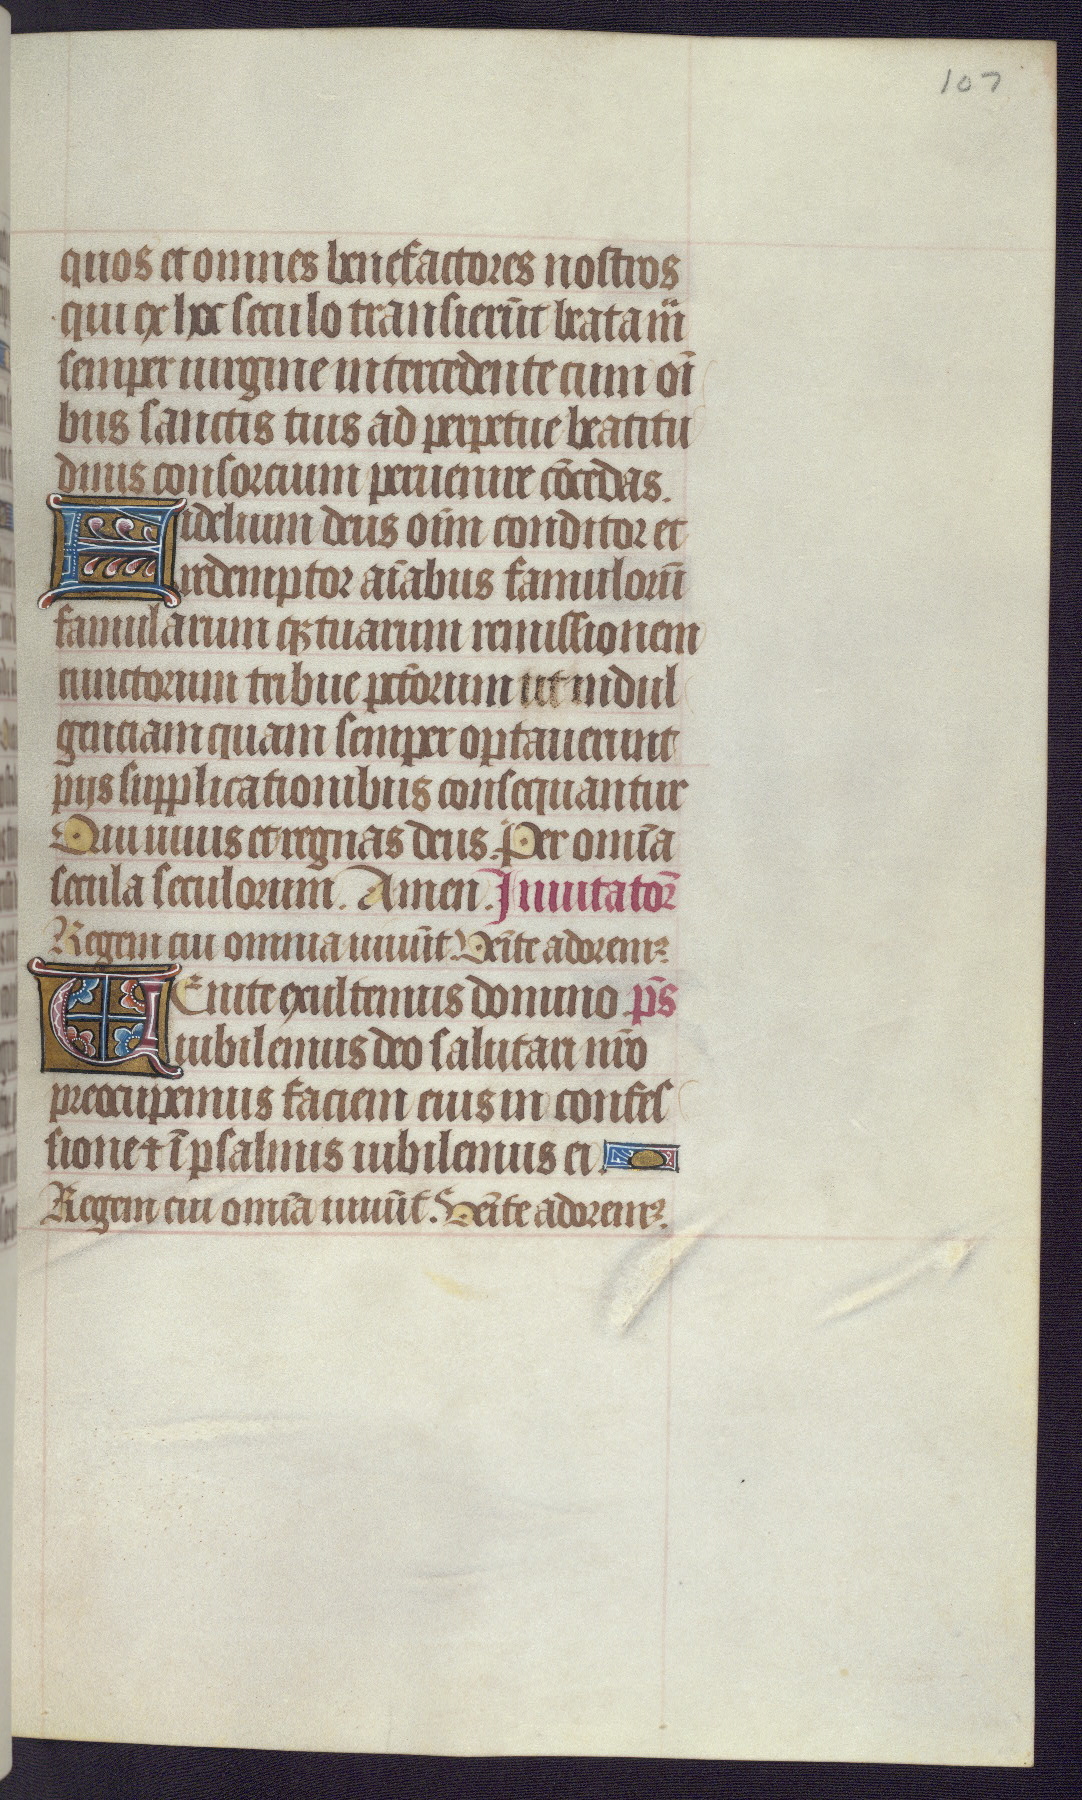 107
quos et omnes benefactores nostros
qui ex hoc seculo transierūt beata m̄
semper uirgine intercedente cum oī
bus sanctis tuis ad perpetue beatitu
dinis consorcium peruenire cōcedas.
Fidelium deus oīm conditor et
redemptor aīabus famulorū
famularum qꝫ tuarum remissionem
cunctorum tribue pctōrum ut indul
genciam quam semper optauerunt
pijs supplicationibus consequantur
Qui uiuis et regnas deus. Per omīa
secula seculorum. Amen. Inuitatoꝝ̄
Regem cui omnia uiuūt. Ueīte adoremꝰ.
UEnite exultemus domino p̄s
iubilemus deo salutari nr̄o
preocupemus faciem eius in confes
sione ⁊ ī psalmis iubilemus ei.
Regem cui omīa uiuūt. Ueīte adoremꝰ.